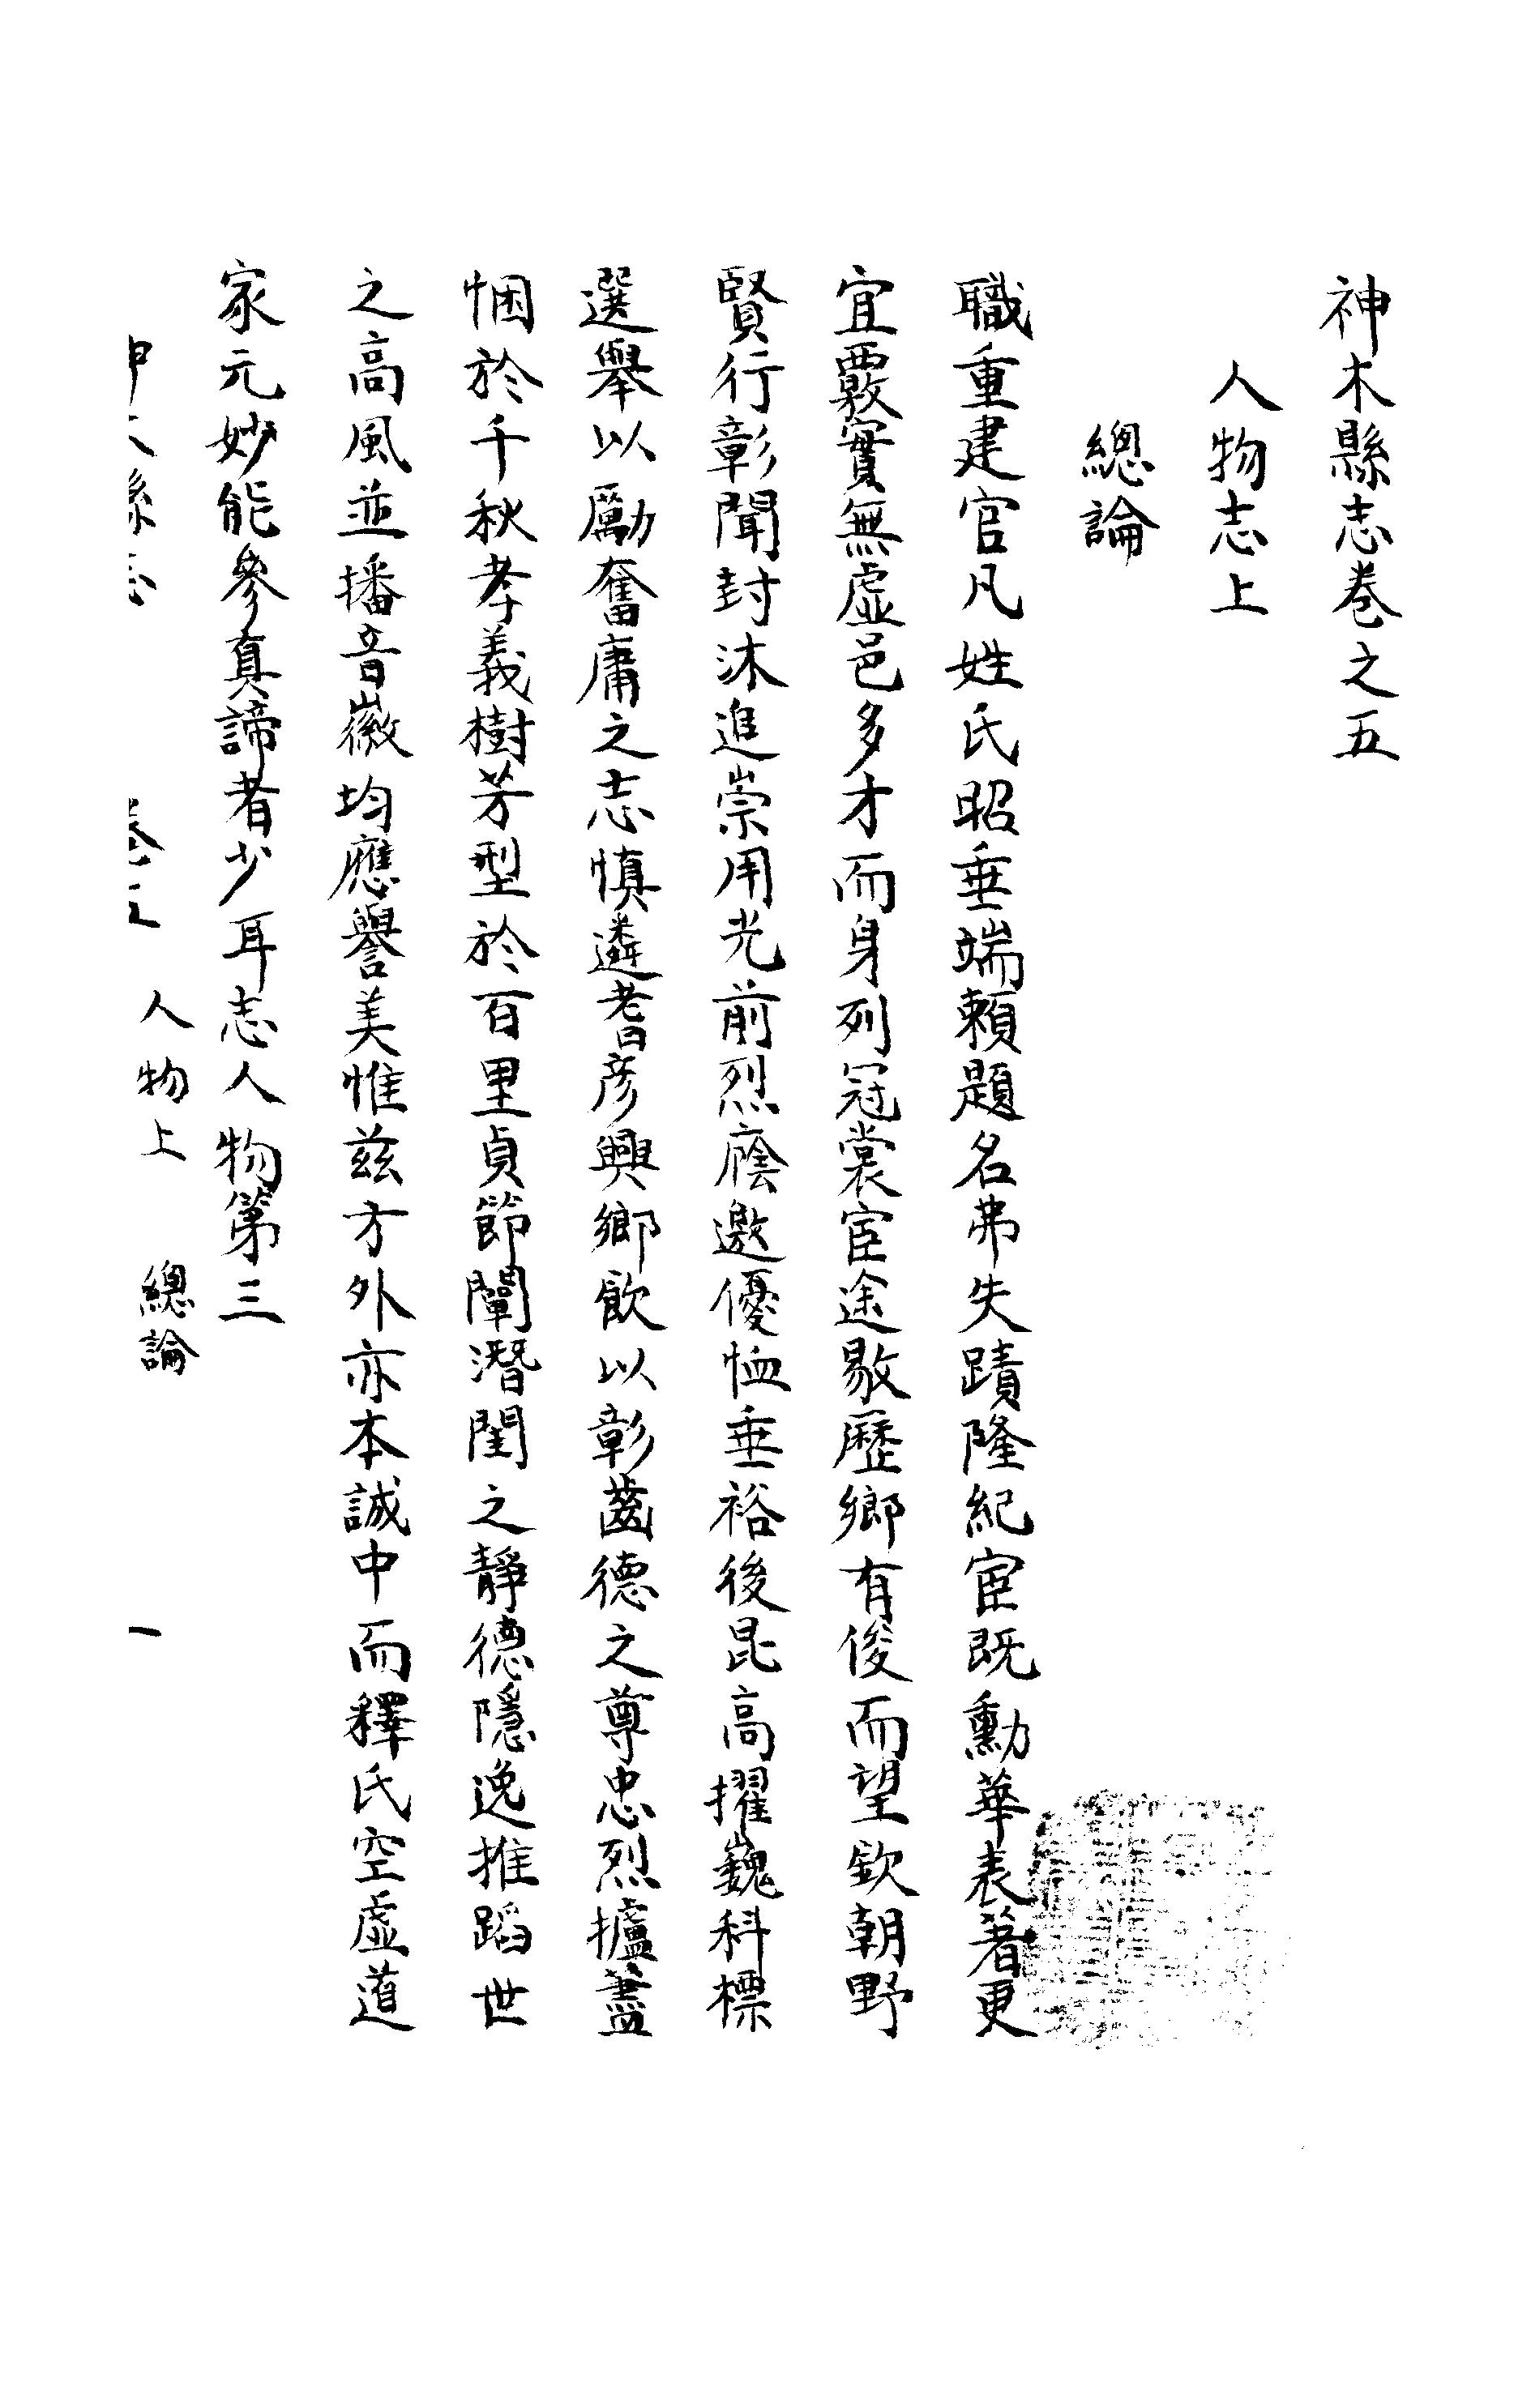 神木縣志卷之五
人物志上
總論
職重建官凡姓氏昭垂端賴題名弗失蹟隆紀宦既勳華表著更
宜覈實無虛邑多才而身列冠裳宦途敭歷鄉有俊而望欽朝野
賢行彰聞封沐進崇用光前烈廕邀優恤垂裕後昆高擢巍科標
選舉以勵奮庸之志慎遴耆彥興鄉飲以彰齒德之尊忠烈攄藎
悃於千秋孝義樹芳型於百里貞節闡潛閨之靜德隱逸推蹈世
之高風並播音徽均應譽美惟茲方外亦本誠中而釋氏空虛道
家元妙能參真諦者少耳志人物第三
神木縣志 卷五 人物上 總論 一